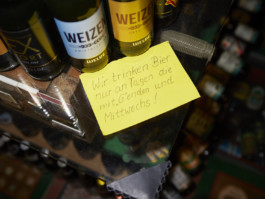 WEIZEN
WEIZE
Wir trinken Bier
nur an Tagen die
mit „G“ enden und
Mittwochs!